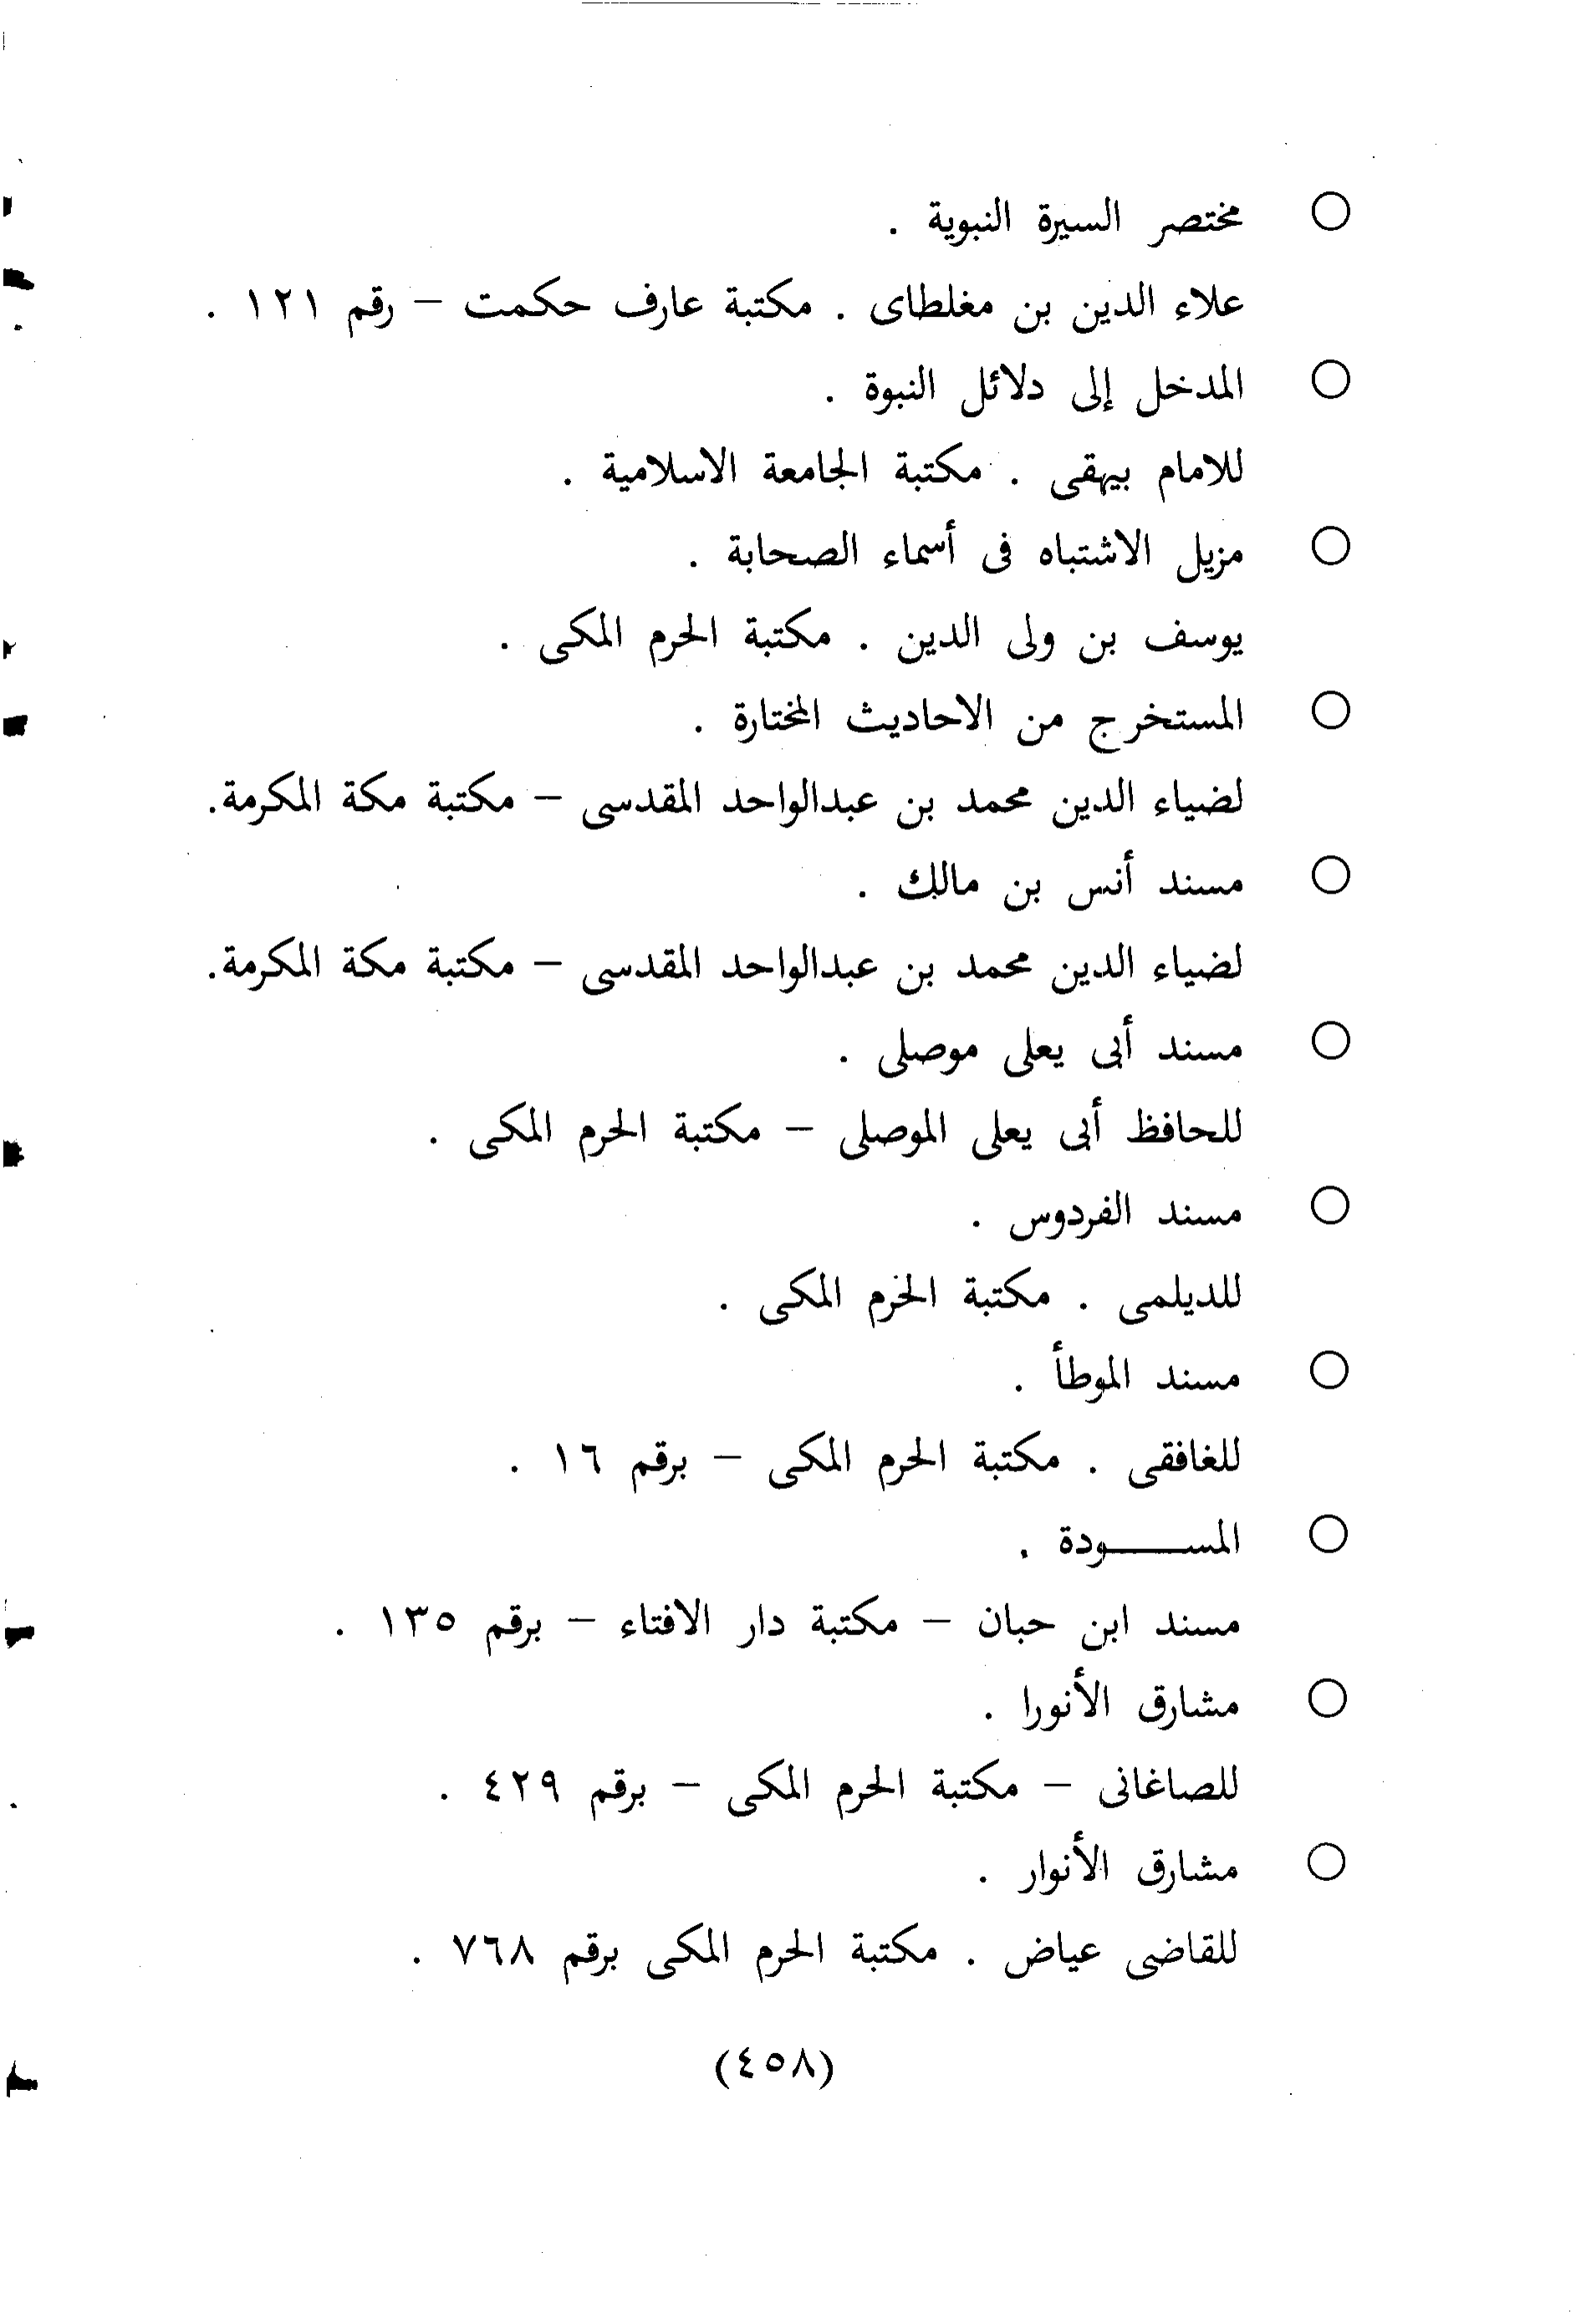 ○ مختصر السيرة النبوية .
علاء الدين بن مغلطاى . مكتبة عارف حكمت – رقم ١٢١ .
○ المدخل إلى دلائل النبوة .
للامام بيهقى . مكتبة الجامعة الاسلامية .
○ مزيل الاشتباه فى أسماء الصحابة .
يوسف بن ولى الدين . مكتبة الحرم المكى .
○ المستخرج من الاحاديث المختارة .
لضياء الدين محمد بن عبدالواحد المقدسى – مكتبة مكة المكرمة.
○ مسند أنس بن مالك .
لضياء الدين محمد بن عبدالواحد المقدسى – مكتبة مكة المكرمة.
○ مسند أبى يعلى موصلى .
للحافظ أبى يعلى الموصلى – مكتبة الحرم المكى .
○ مسند الفردوس .
للديلمى . مكتبة الخرم المكى .
○ مسند الموطأ .
للغافقى . مكتبة الحرم المكى – برقم ١٦ .
○ المســـــودة .
مسند ابن حبان – مكتبة دار الافتاء – برقم ١٣٥ .
○ مشارق الأنورا .
للصاغانى – مكتبة الحرم المكى – برقم ٤٢٩ .
○ مشارق الأنوار .
للقاضى عياض . مكتبة الحرم المكى برقم ٧٦٨ .
(٤٥٨)